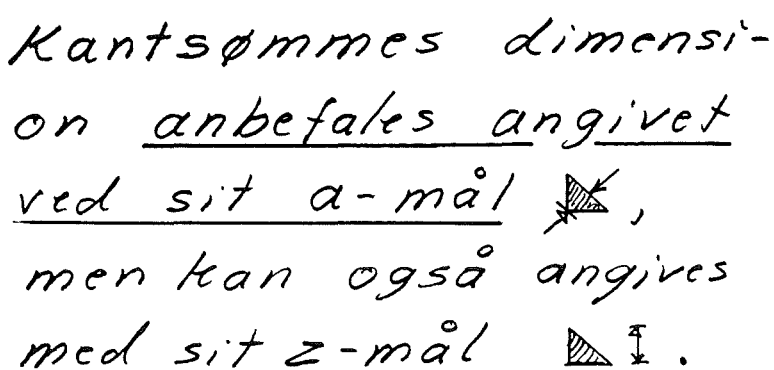 Kantsømmes dimensi-
on anbefales angivet
ved sit a-mål ,
men kan også angives
med sit z-mål .